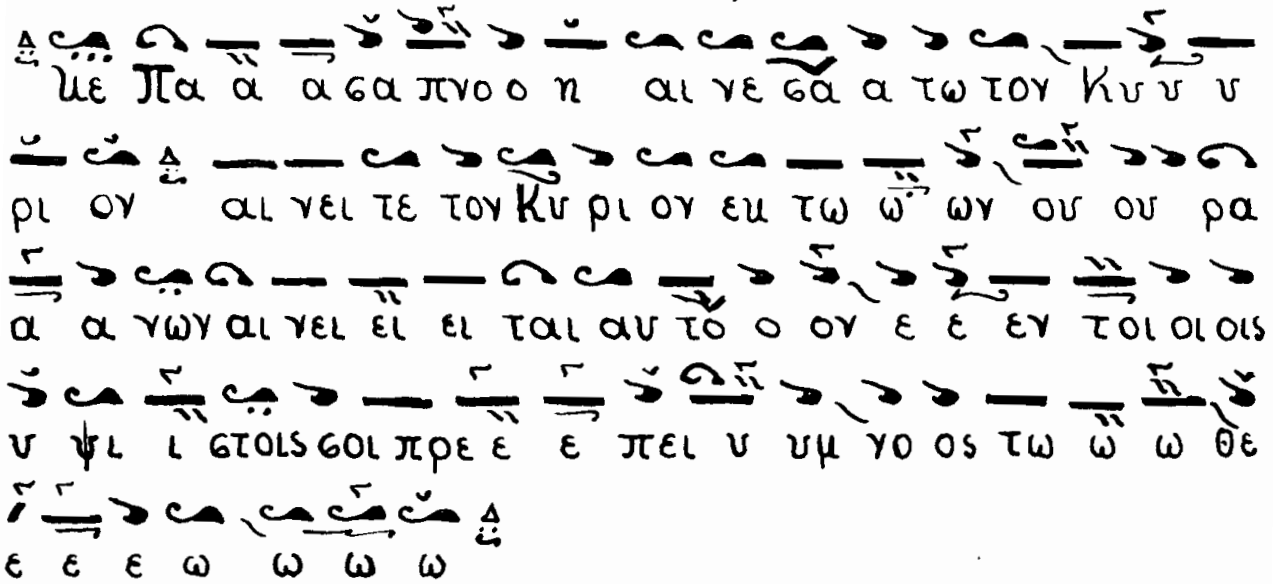 κε Πα α α σα πνο ο η αι νε σα α τω τον Κυ υ υ
ρι ον αι νει τε τον Κυ ρι ον εκ τω ω ων ου ου ρα
α α νων αι νει ει ει ται αυ το ο ον ε ε εν τοι οι οις
υ ψι ι στοις σοι πρε ε ε πει υ υμ νο ος τω ω ω θε
ε ε ε ω ω ω ω